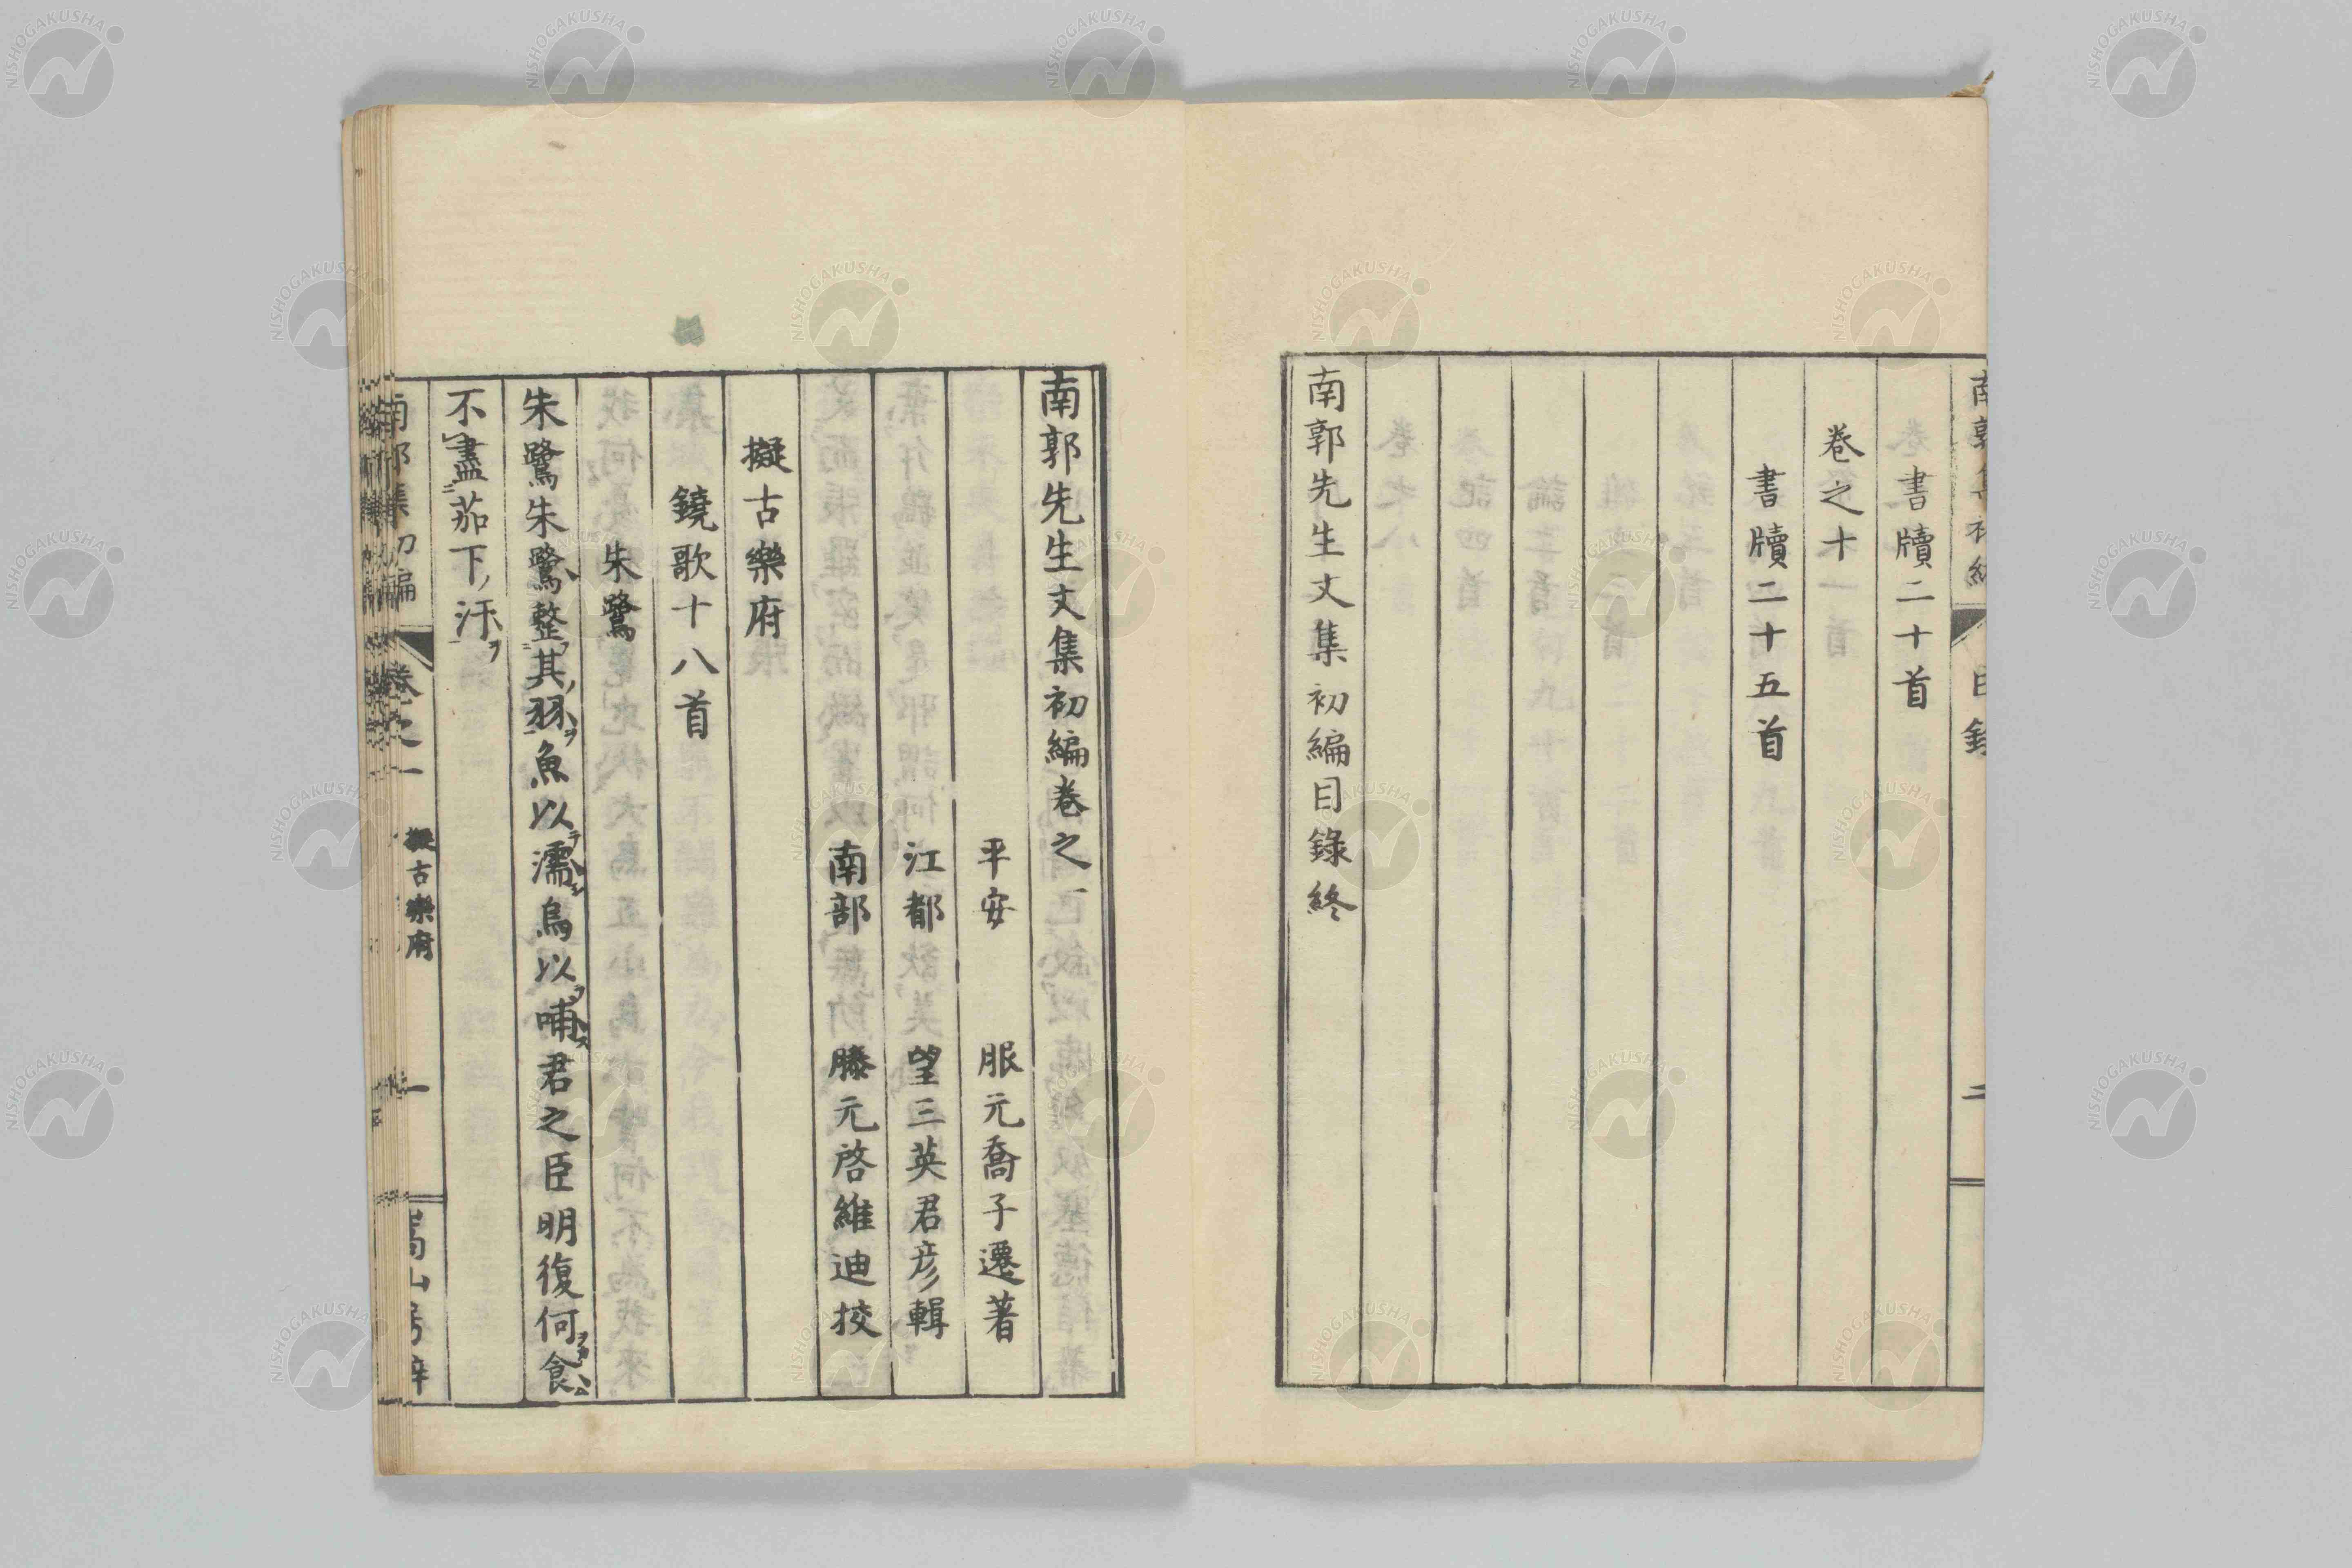 書牘二十首
卷之十
書牘二十五首
南郭先生文集初編目錄終
南郭先生文集初編卷之一
平安 服元喬子遷著
江都 望三英君彥輯
南部 滕元啓維迪挍
擬古樂府
鐃歌十八首
朱鷺
朱鷺朱鷺整其羽魚以濡烏以哺君之臣明復何食
不盡茄下汙
南郭集初編 卷之一 擬古樂府 一 嵩山房梓
NISHOGAKUSHA